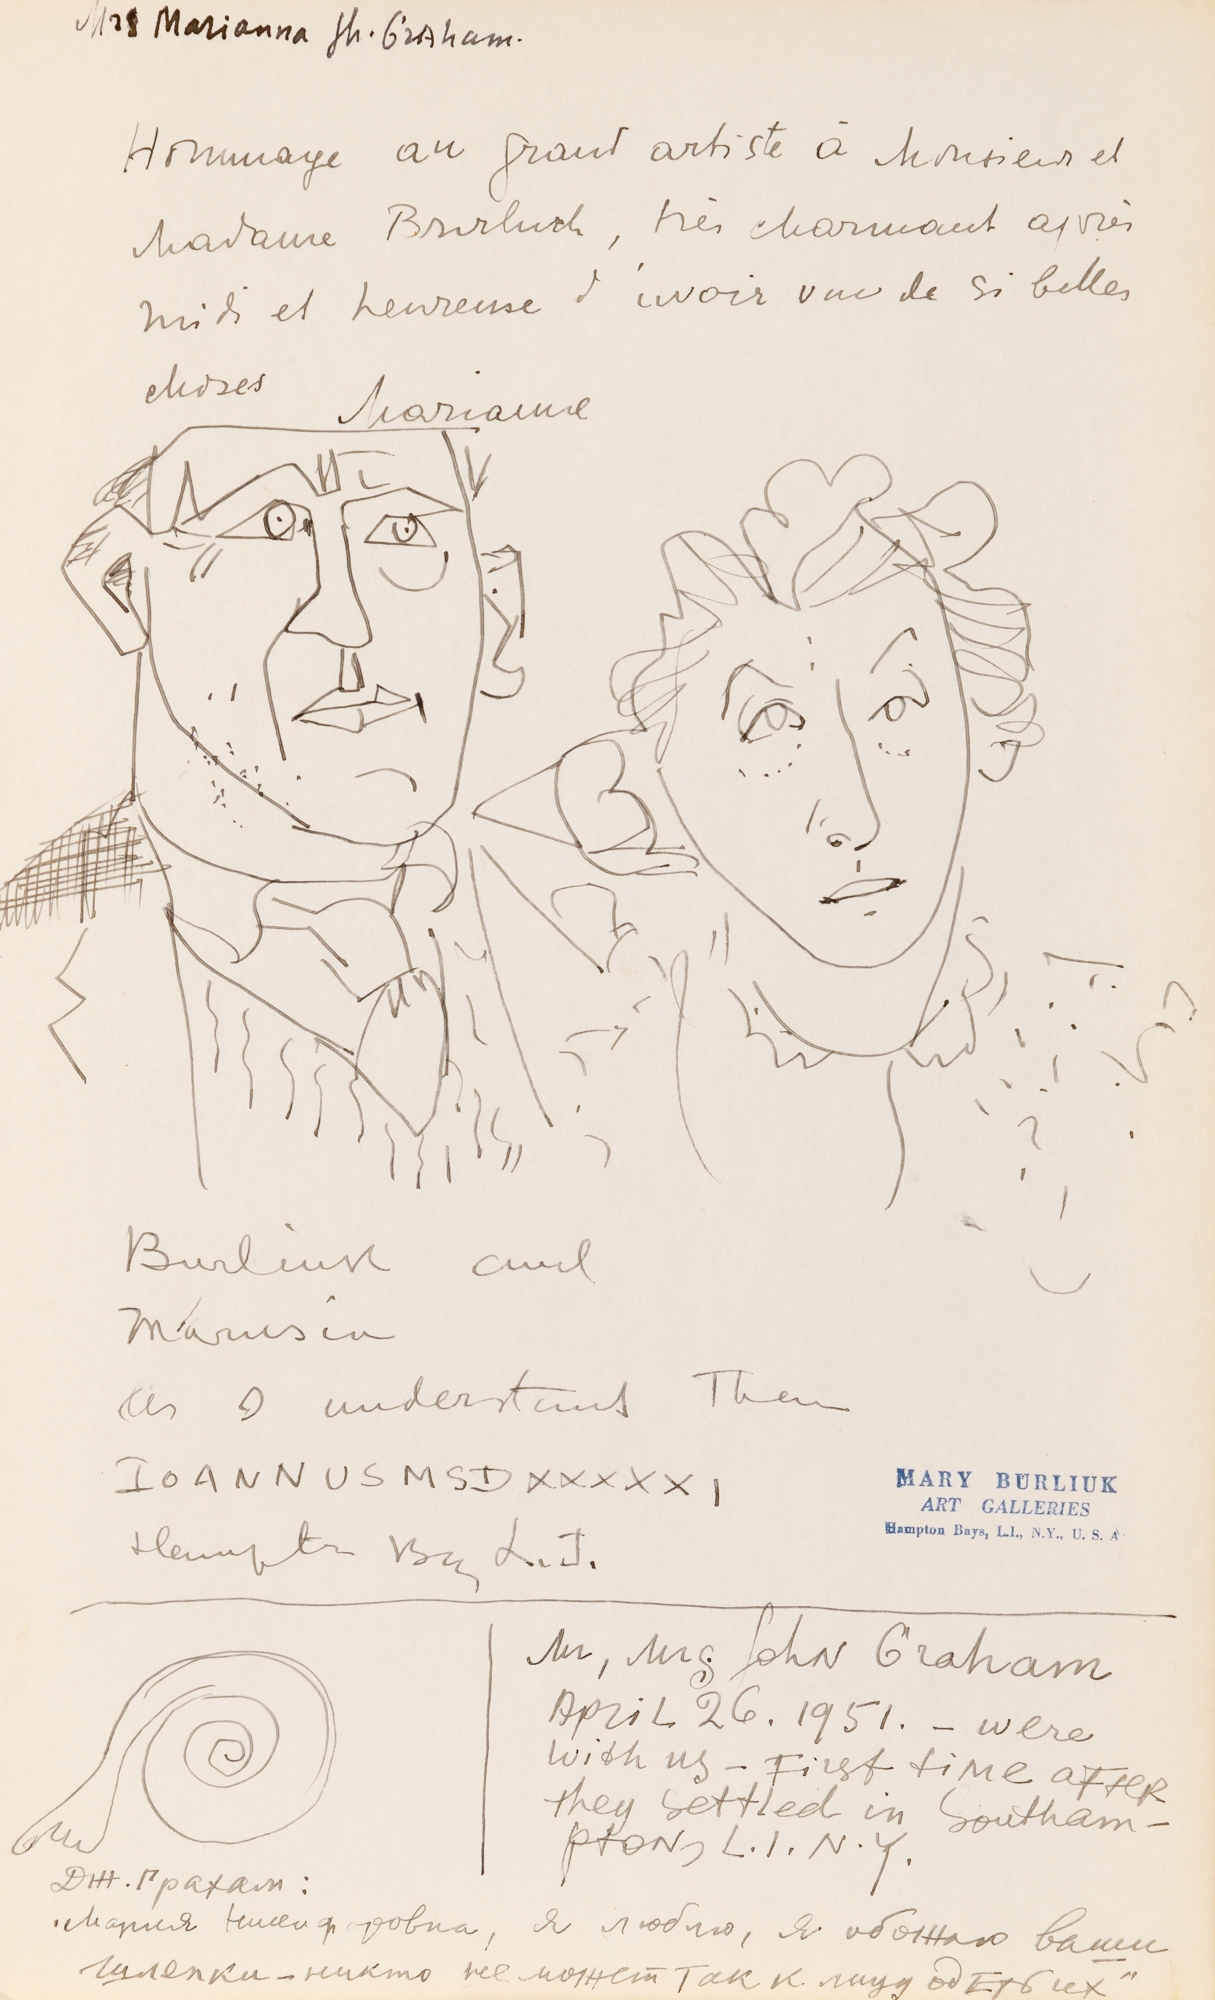 Mrs Marianna Jh. Graham.
Hommage au grand artiste à Monsieur et
Madame Burliuk, très charmant après
midi et heureuse d'avoir vue de si belles
choses
Marianne
Burliuk and
Marusia
as I understand Them
IOANNUS MSDXXXXXI
Hampton Bay L.I.
MARY BURLIUK
ART GALLERIES
Hampton Bays, L.I., N.Y., U. S. A
Mr, Mrs John Graham
April 26. 1951. – were
with us – First time aFTER
they settled in Southam-
ptons L.I. N.Y.
Дж. Грахам:
"Мария Никифоровна, я люблю, я обожаю ваши
шляпки – никто не может так к лицу одеть их"